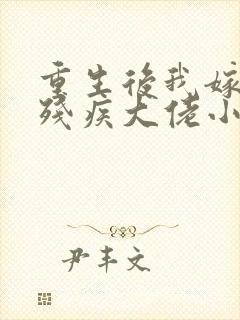 重生後我嫁
殘疾大佬小
尹丰文